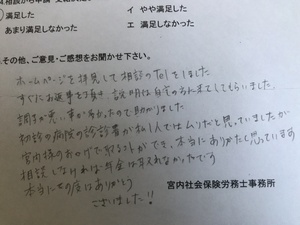 満足した イ やや満足した
あまり満足しなかった エ 満足しなかった
.その他、ご意見・ご感想をお聞かせ下さい。
ホームページを拝見して相談のTelをしました
すぐにお返事を頂き、説明は自宅の方に来てしてもらいました。
調子が悪い事が多いので助かりました
初診の病院の診断書が私1人ではムリだと思っていましたが
宮内様のおかげで取ることができ、本当にありがたく思っています
相談しなければ年金は与えれなかったです
本当にその度はありがとう
ございました!!
宮内社会保険労務士事務所